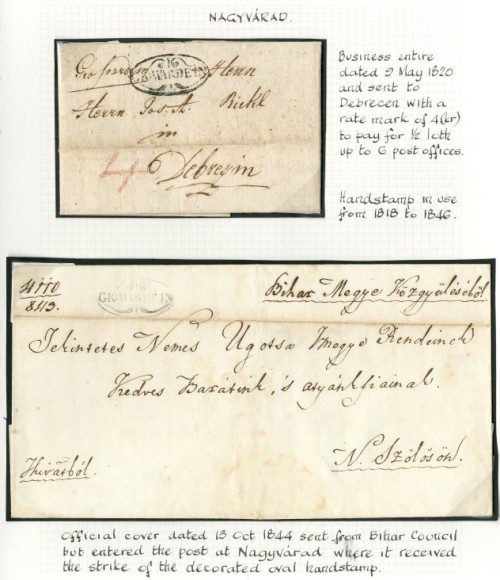 NAGYVÁRAD.
GR. WARDEIN
Herrn
Herrn Jos. A. Bickl
in
4
Debrezin
Business entire
dated 9 May 1820
and sent to
Debrecen with a
rate mark of 4(kr)
to pay for ½ loth
up to 6 post offices.
Handstamp in use
from 1818 to 1846.
4110
843.
GR. WARDEIN
Bihar Megye Közgyüléséböl
Tekintetes Nemes Ugotsa Megye Rendeinek
Kedves Barátink, 's atyánkfiainak.
Hivatból.
N. Szölösön.
Official cover dated 13 Oct 1844 sent from Bihar Council
but entered the post at Nagyvárad where it received
the strike of the decorated oval handstamp.